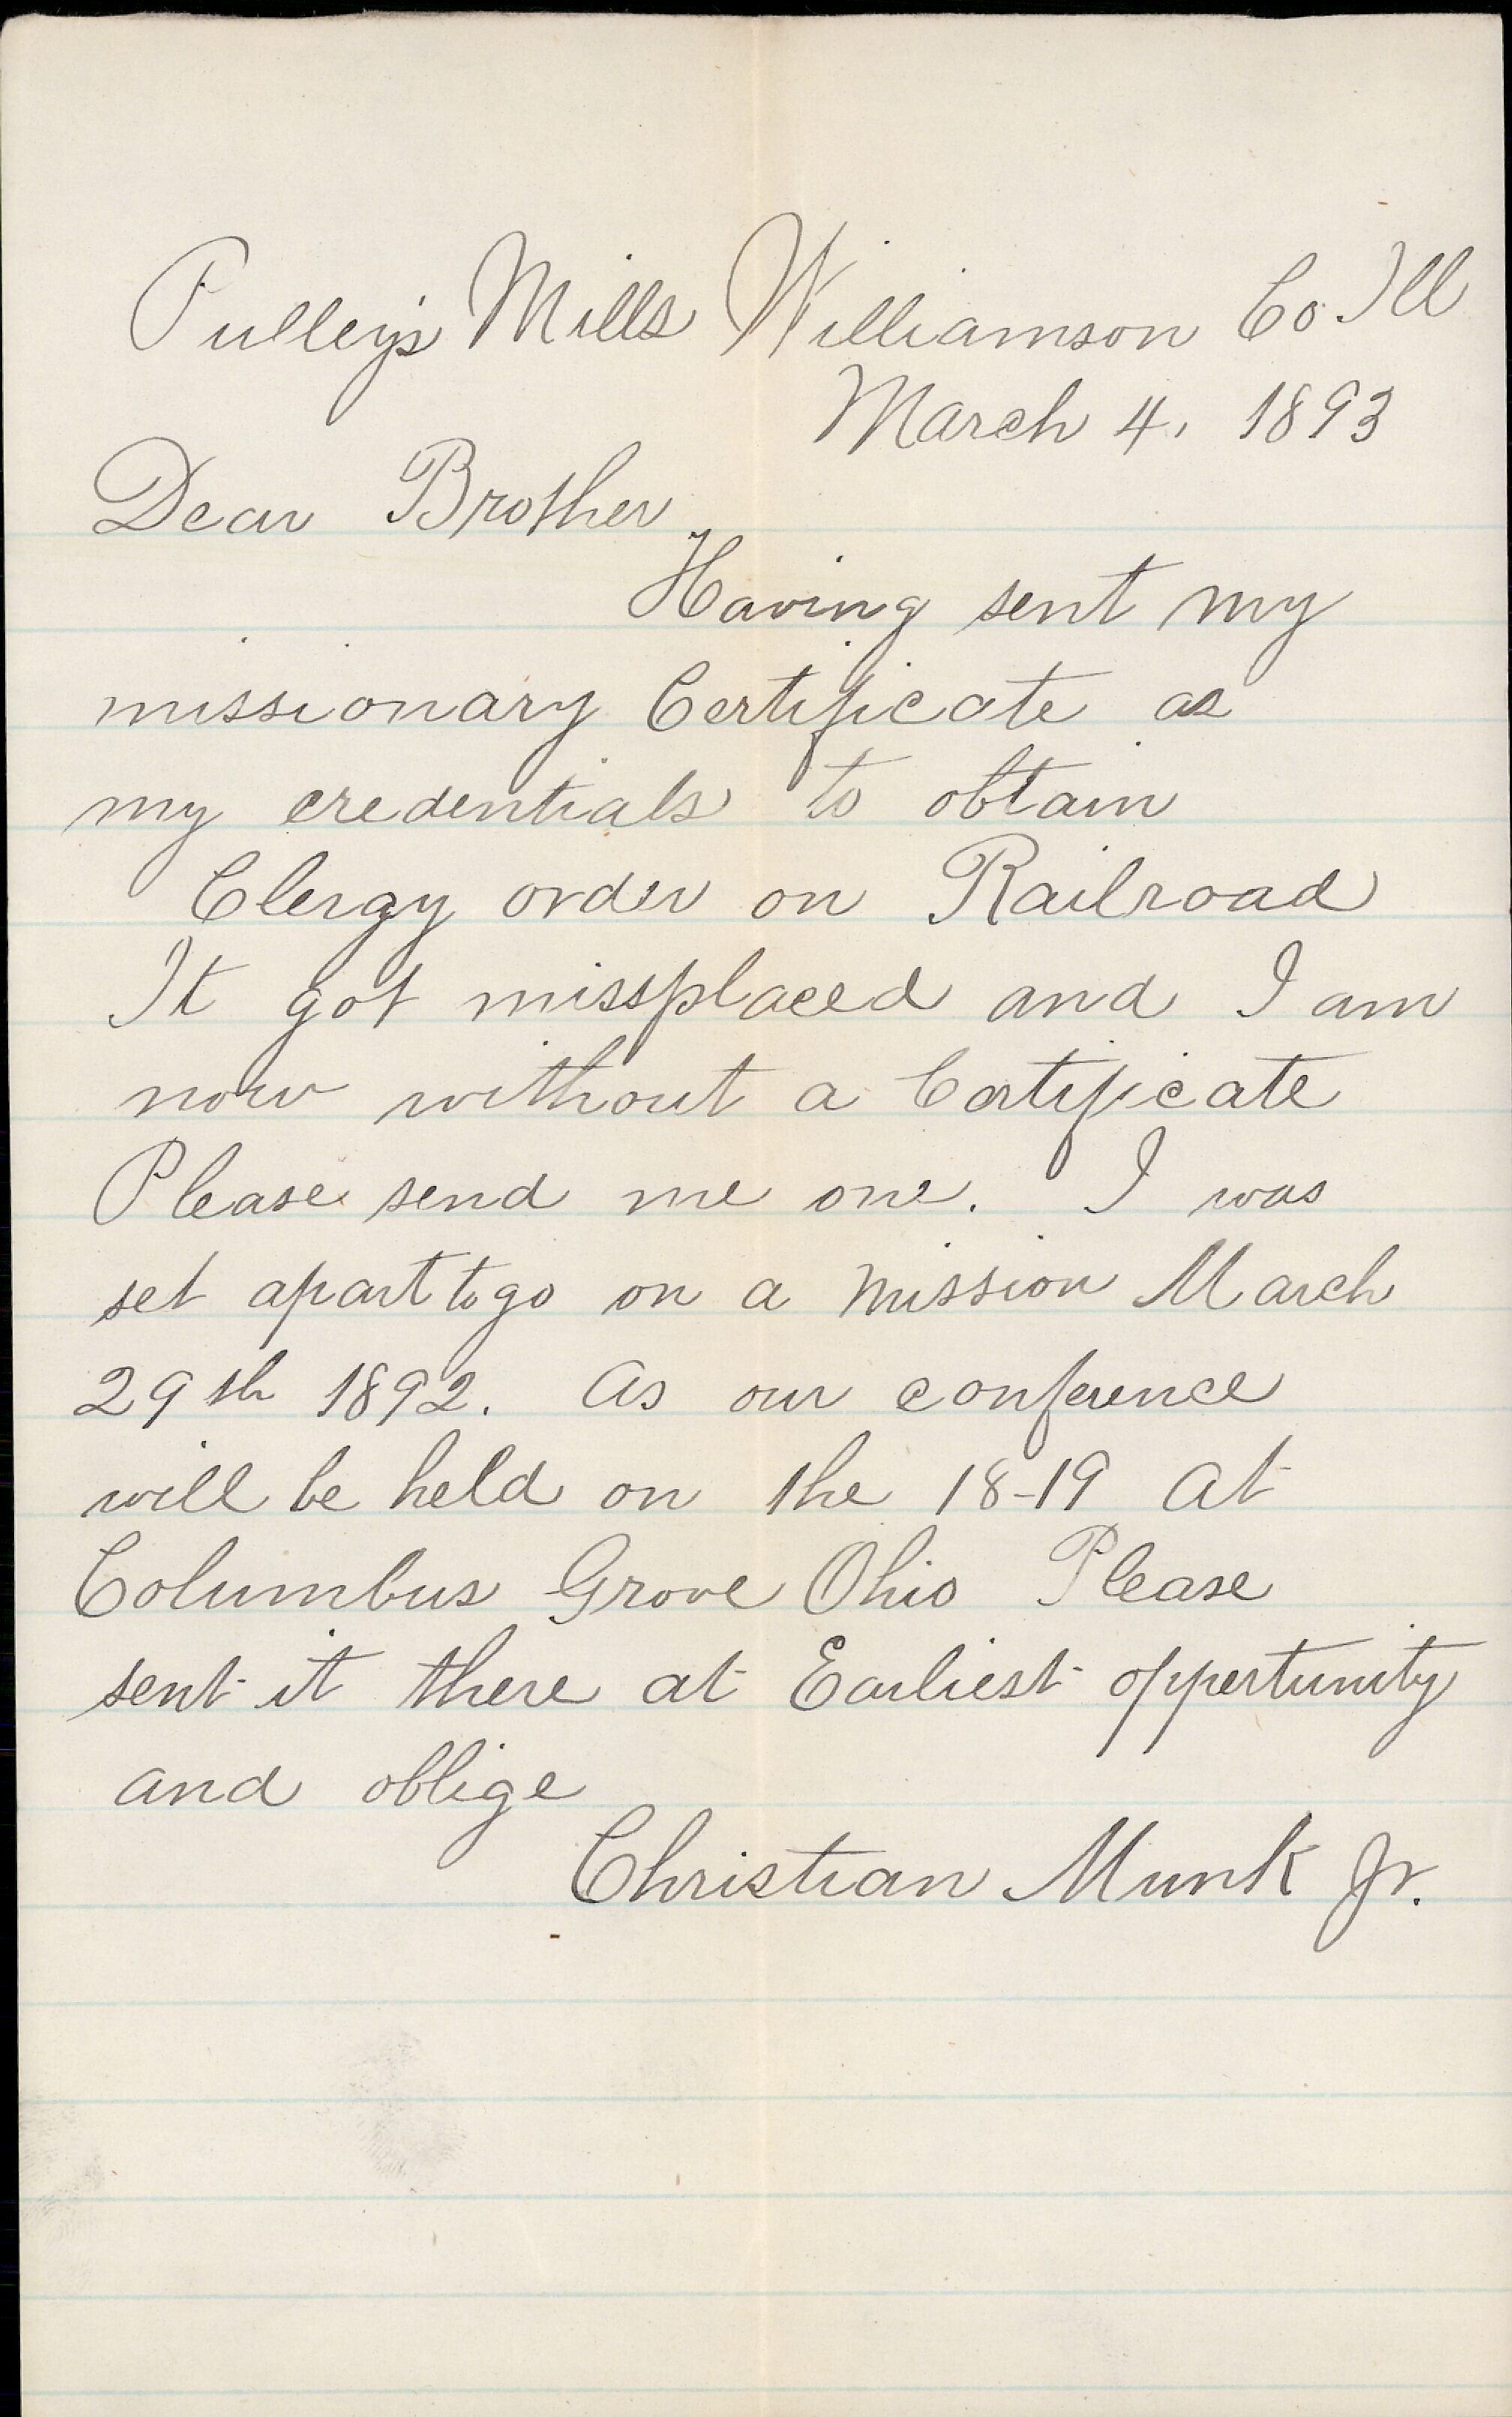 Pulley's Mills Williamson Co Ill
March 4, 1893
Dear Brother
Having sent my
missionary Certificate as
my credentials to obtain
Clergy order on Railroad
It got missplaced and I am
now without a Certificate
Please send me one. I was
set apart to go on a mission March
29th 1892. As our conference
will be held on the 18-19 at
Columbus Grove Ohio Please
sent it there at Earliest oppertunity
and oblige
Christian Munk Jr.